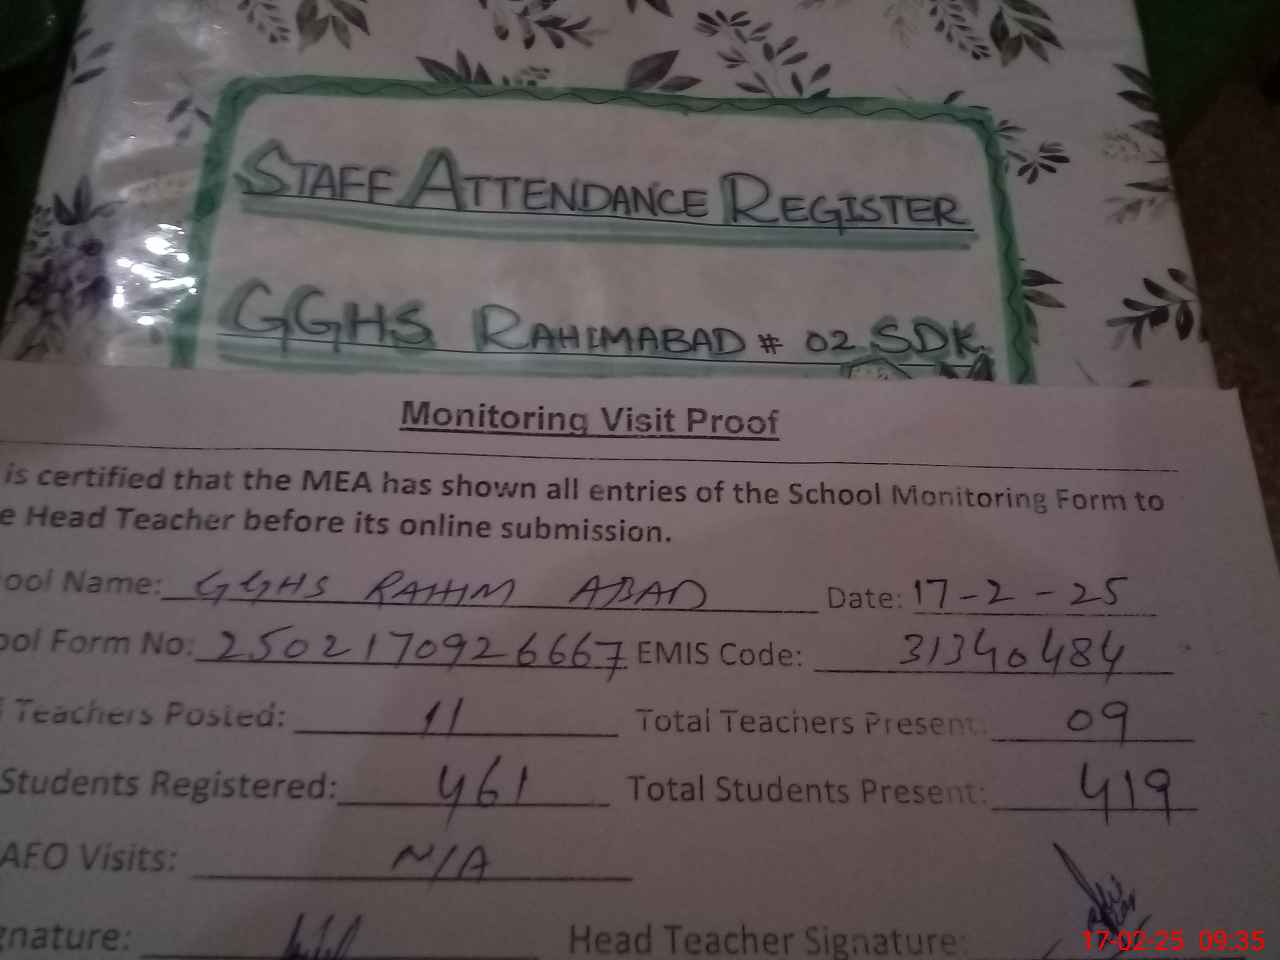 STAFF ATTENDANCE REGISTER
GGHS RAHIMABAD # 02 SDK.
Monitoring Visit Proof
is certified that the MEA has shown all entries of the School Monitoring Form to
e Head Teacher before its online submission.
ool Name: GGHS RAHIM ABAD Date: 17-2-25
ool Form No: 2502170926667 EMIS Code: 31340484
Teachers Posted: 11 Total Teachers Present: 09
Students Registered: 461 Total Students Present: 419
AEO Visits: N/A
gnature: Head Teacher Signature:
17-02-25 09:35